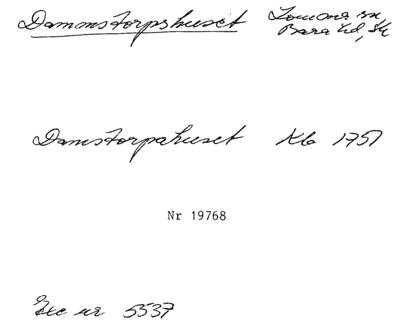 Dammstorpshuset Lomma sn
Bara hd, Sk
Damstorpahuset Kb 1757
Nr 19768
Exc nr 5537